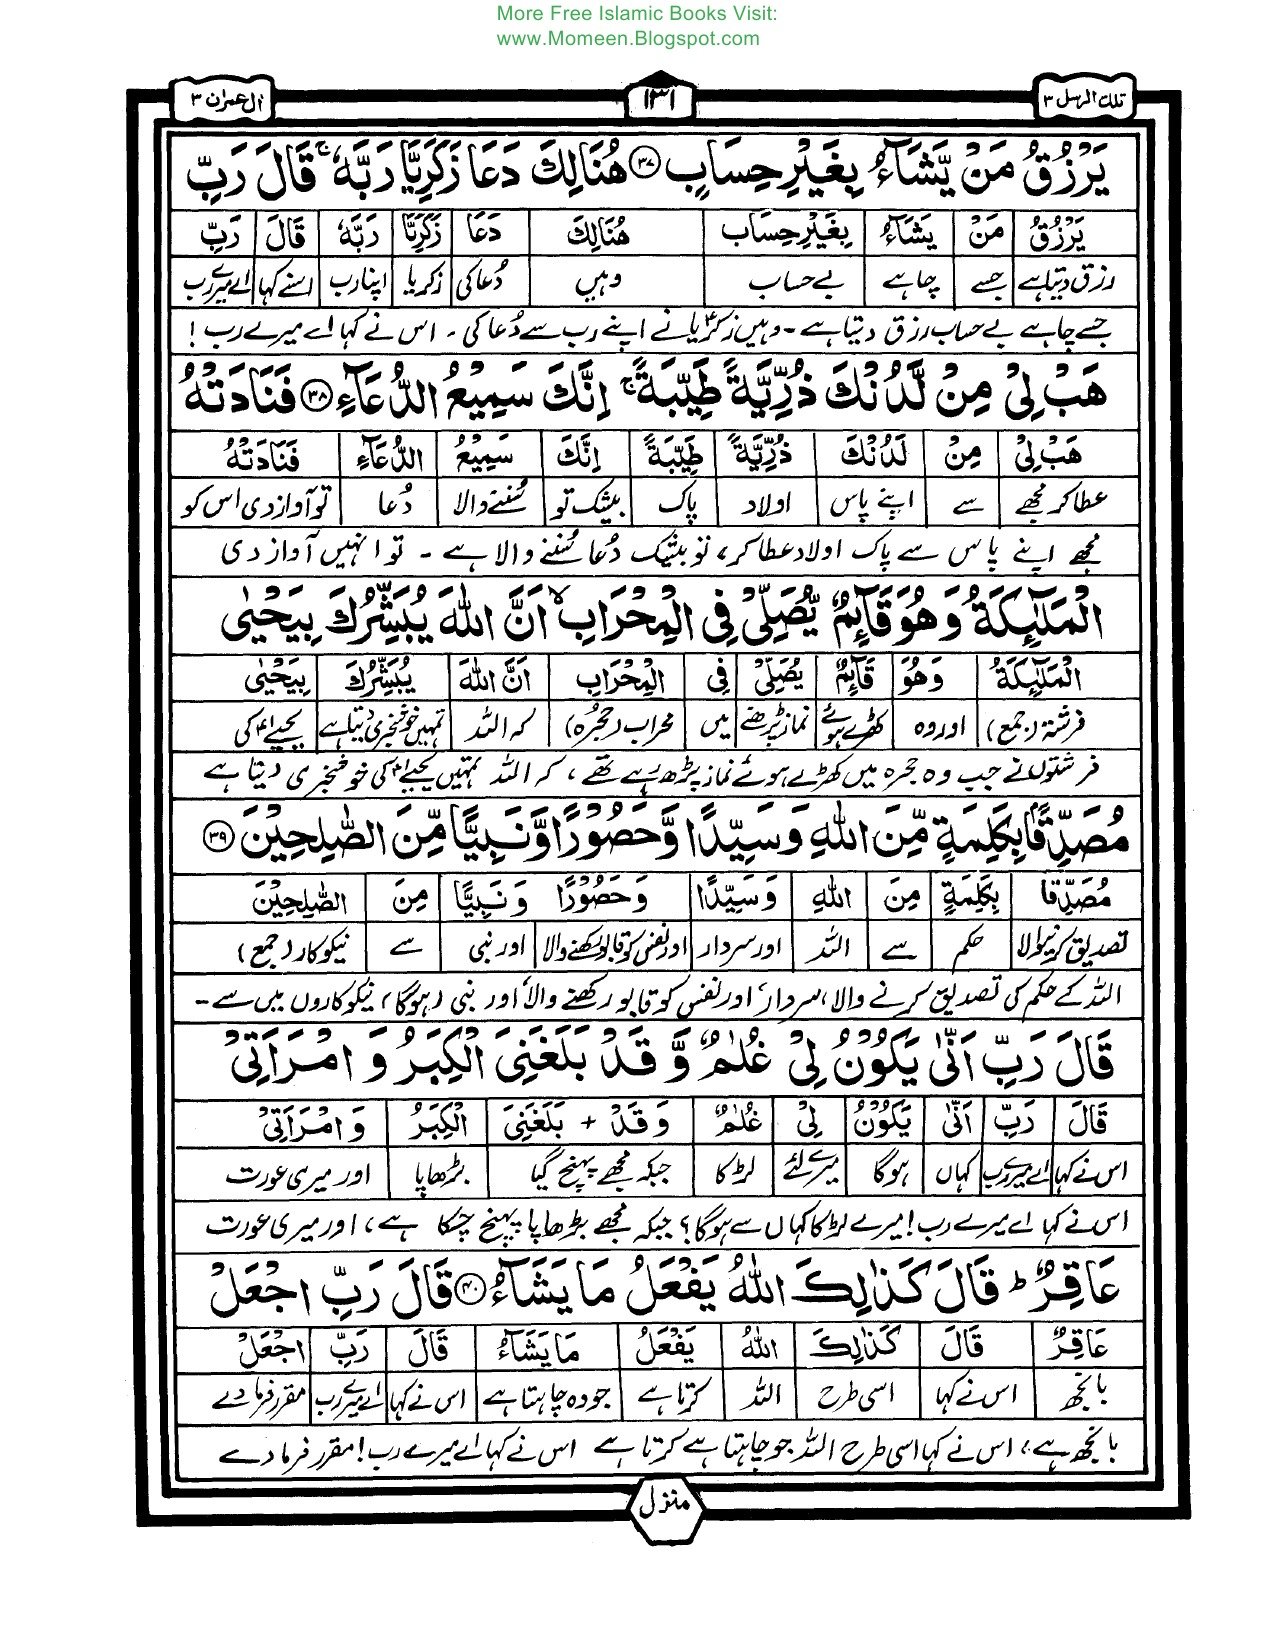 More Free Islamic Books Visit:
www.Momeen.Blogspot.com
تلك الرسل ۳ ۱۳۱ اٰل عمران ۳
يَرْزُقُ مَنْ يَّشَآءُ بِغَيْرِ حِسَابٍ ﴿۳۷﴾ هُنَالِكَ دَعَا زَكَرِيَّا رَبَّهٗ ۚ قَالَ رَبِّ
يَرْزُقُ مَنْ يَشَآءُ بِغَيْرِ حِسَابٍ هُنَالِكَ دَعَا زَكَرِيَّا رَبَّهٗ قَالَ رَبِّ
رزق دیتا ہے جسے چاہے بے حساب وہیں دُعا کی زکریا اپنا رب اسنے کہا اے میرے رب
جسے چاہے بے حساب رزق دیتا ہے ۔ وہیں زکریاؑ نے اپنے رب سے دُعا کی ۔ اس نے کہا اے میرے رب !
هَبْ لِيْ مِنْ لَّدُنْكَ ذُرِّيَّةً طَيِّبَةً ۚ اِنَّكَ سَمِيْعُ الدُّعَآءِ ﴿۳۸﴾ فَنَادَتْهُ
هَبْ لِيْ مِنْ لَدُنْكَ ذُرِّيَّةً طَيِّبَةً اِنَّكَ سَمِيْعُ الدُّعَآءِ فَنَادَتْهُ
عطا کر مجھے سے اپنے پاس اولاد پاک بیشک تو سُننے والا دُعا تو آواز دی اس کو
مجھے اپنے پاس سے پاک اولاد عطا کر، تو بیشک دُعا سُننے والا ہے ۔ تو انہیں آواز دی
الْمَلٰٓئِكَةُ وَهُوَ قَآئِمٌ يُّصَلِّيْ فِي الْمِحْرَابِ ۙ اَنَّ اللّٰهَ يُبَشِّرُكَ بِيَحْيٰى
الْمَلٰٓئِكَةُ وَهُوَ قَآئِمٌ يُصَلِّيْ فِي الْمِحْرَابِ اَنَّ اللّٰهَ يُبَشِّرُكَ بِيَحْيٰى
فرشتہ (جمع) اور وہ کھڑے ہوئے نماز پڑھنے میں محراب (حجرہ) کہ اللہ تمہیں خوشخبری دیتا ہے یحییٰؑ کی
فرشتوں نے جب وہ حجرہ میں کھڑے ہوئے نماز پڑھ رہے تھے ، کہ اللہ تمہیں یحییٰؑ کی خوشخبری دیتا ہے
مُصَدِّقًۢا بِكَلِمَةٍ مِّنَ اللّٰهِ وَسَيِّدًا وَّحَصُوْرًا وَّنَبِيًّا مِّنَ الصّٰلِحِيْنَ ﴿۳۹﴾
مُصَدِّقًا بِكَلِمَةٍ مِنَ اللّٰهِ وَسَيِّدًا وَحَصُوْرًا وَنَبِيًّا مِنَ الصّٰلِحِيْنَ
تصدیق کرنیوالا حکم سے اللہ اور سردار اور نفس کو قابو رکھنے والا اور نبی سے نیکوکار (جمع)
اللہ کے حکم کی تصدیق کرنے والا، سردار، اور نفس کو قابو رکھنے والا، اور نبی (ہوگا) نیکوکاروں میں سے ۔
قَالَ رَبِّ اَنّٰى يَكُوْنُ لِيْ غُلٰمٌ وَّقَدْ بَلَغَنِيَ الْكِبَرُ وَ امْرَاَتِيْ
قَالَ رَبِّ اَنّٰى يَكُوْنُ لِيْ غُلٰمٌ وَقَدْ + بَلَغَنِيَ الْكِبَرُ وَ امْرَاَتِيْ
اس نے کہا اے میرے رب کہاں ہوگا میرے لئے لڑکا جبکہ مجھے پہنچ گیا بڑھاپا اور میری عورت
اس نے کہا اے میرے رب ! میرے لڑکا کہاں سے ہوگا ؟ جبکہ مجھے بڑھاپا پہنچ چکا ہے ، اور میری عورت
عَاقِرٌ ؕ قَالَ كَذٰلِكَ اللّٰهُ يَفْعَلُ مَا يَشَآءُ ﴿۴۰﴾ قَالَ رَبِّ اجْعَلْ
عَاقِرٌ قَالَ كَذٰلِكَ اللّٰهُ يَفْعَلُ مَا يَشَآءُ قَالَ رَبِّ اجْعَلْ
بانجھ اس نے کہا اسی طرح اللہ کرتا ہے جو وہ چاہتا ہے اس نے کہا اے میرے رب مقرر فرما دے
بانجھ ہے ، اس نے کہا اسی طرح اللہ جو چاہتا ہے کرتا ہے اس نے کہا اے میرے رب ! مقرر فرما دے
منزل